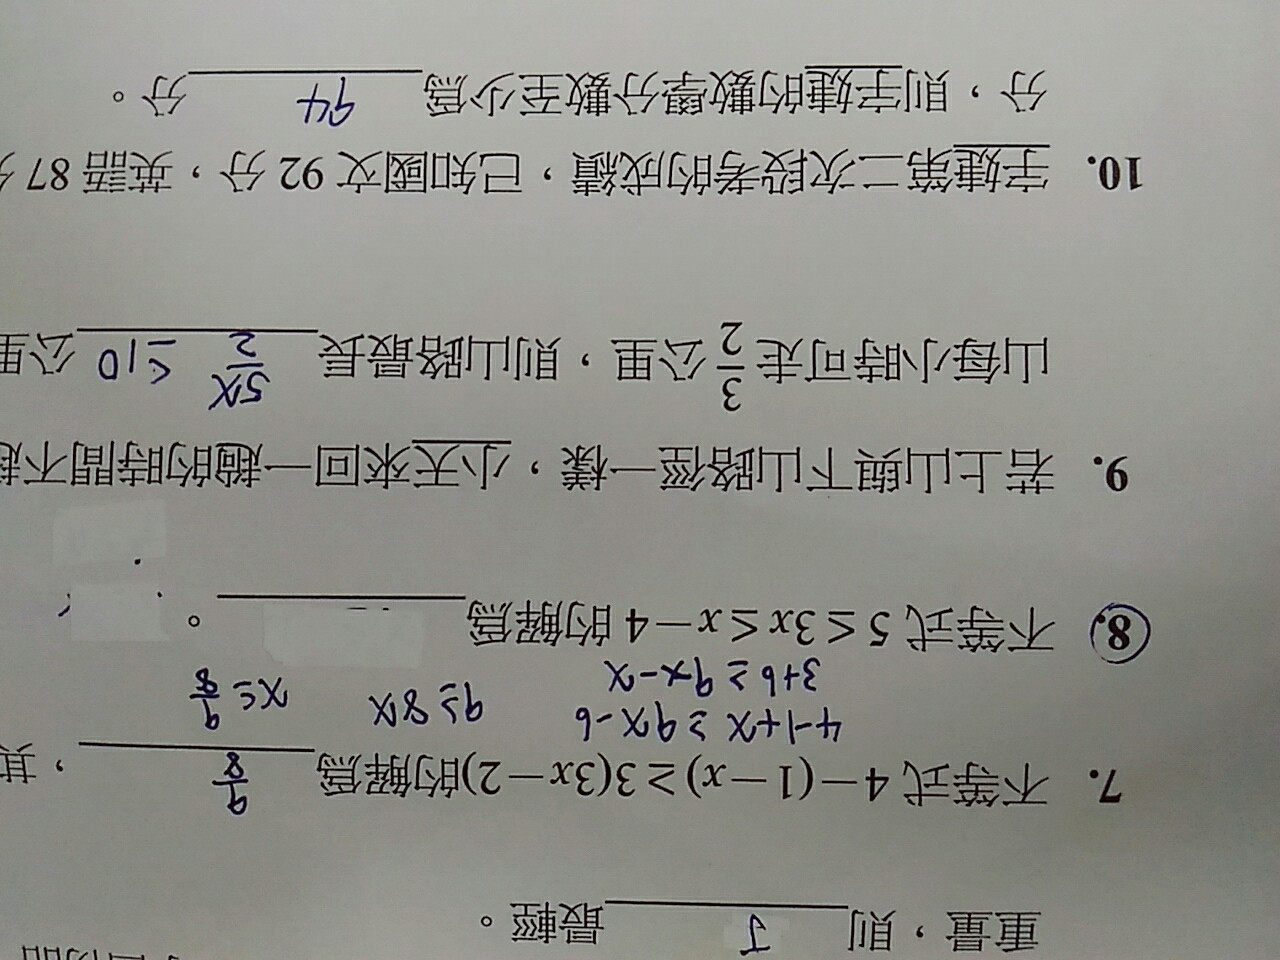 重量,則 丁 最輕。
7. 不等式 4-(1-x)≥3(3x-2)的解為 9/8 ,其
4-1+x ≥ 9x-6
3+6 ≥ 9x-x 9≥8x x≤ 9/8
8. 不等式 5≤3x≤x-4 的解為 。
9. 若上山與下山路徑一樣,小天來回一趟的時間不超
山每小時可走 3/2 公里,則山路最長 5x/2 ≤10 公里
10. 宇婕第二次段考的成績,已知國文 92 分,英語 87 分
分,則宇婕的數學分數至少為 94 分。